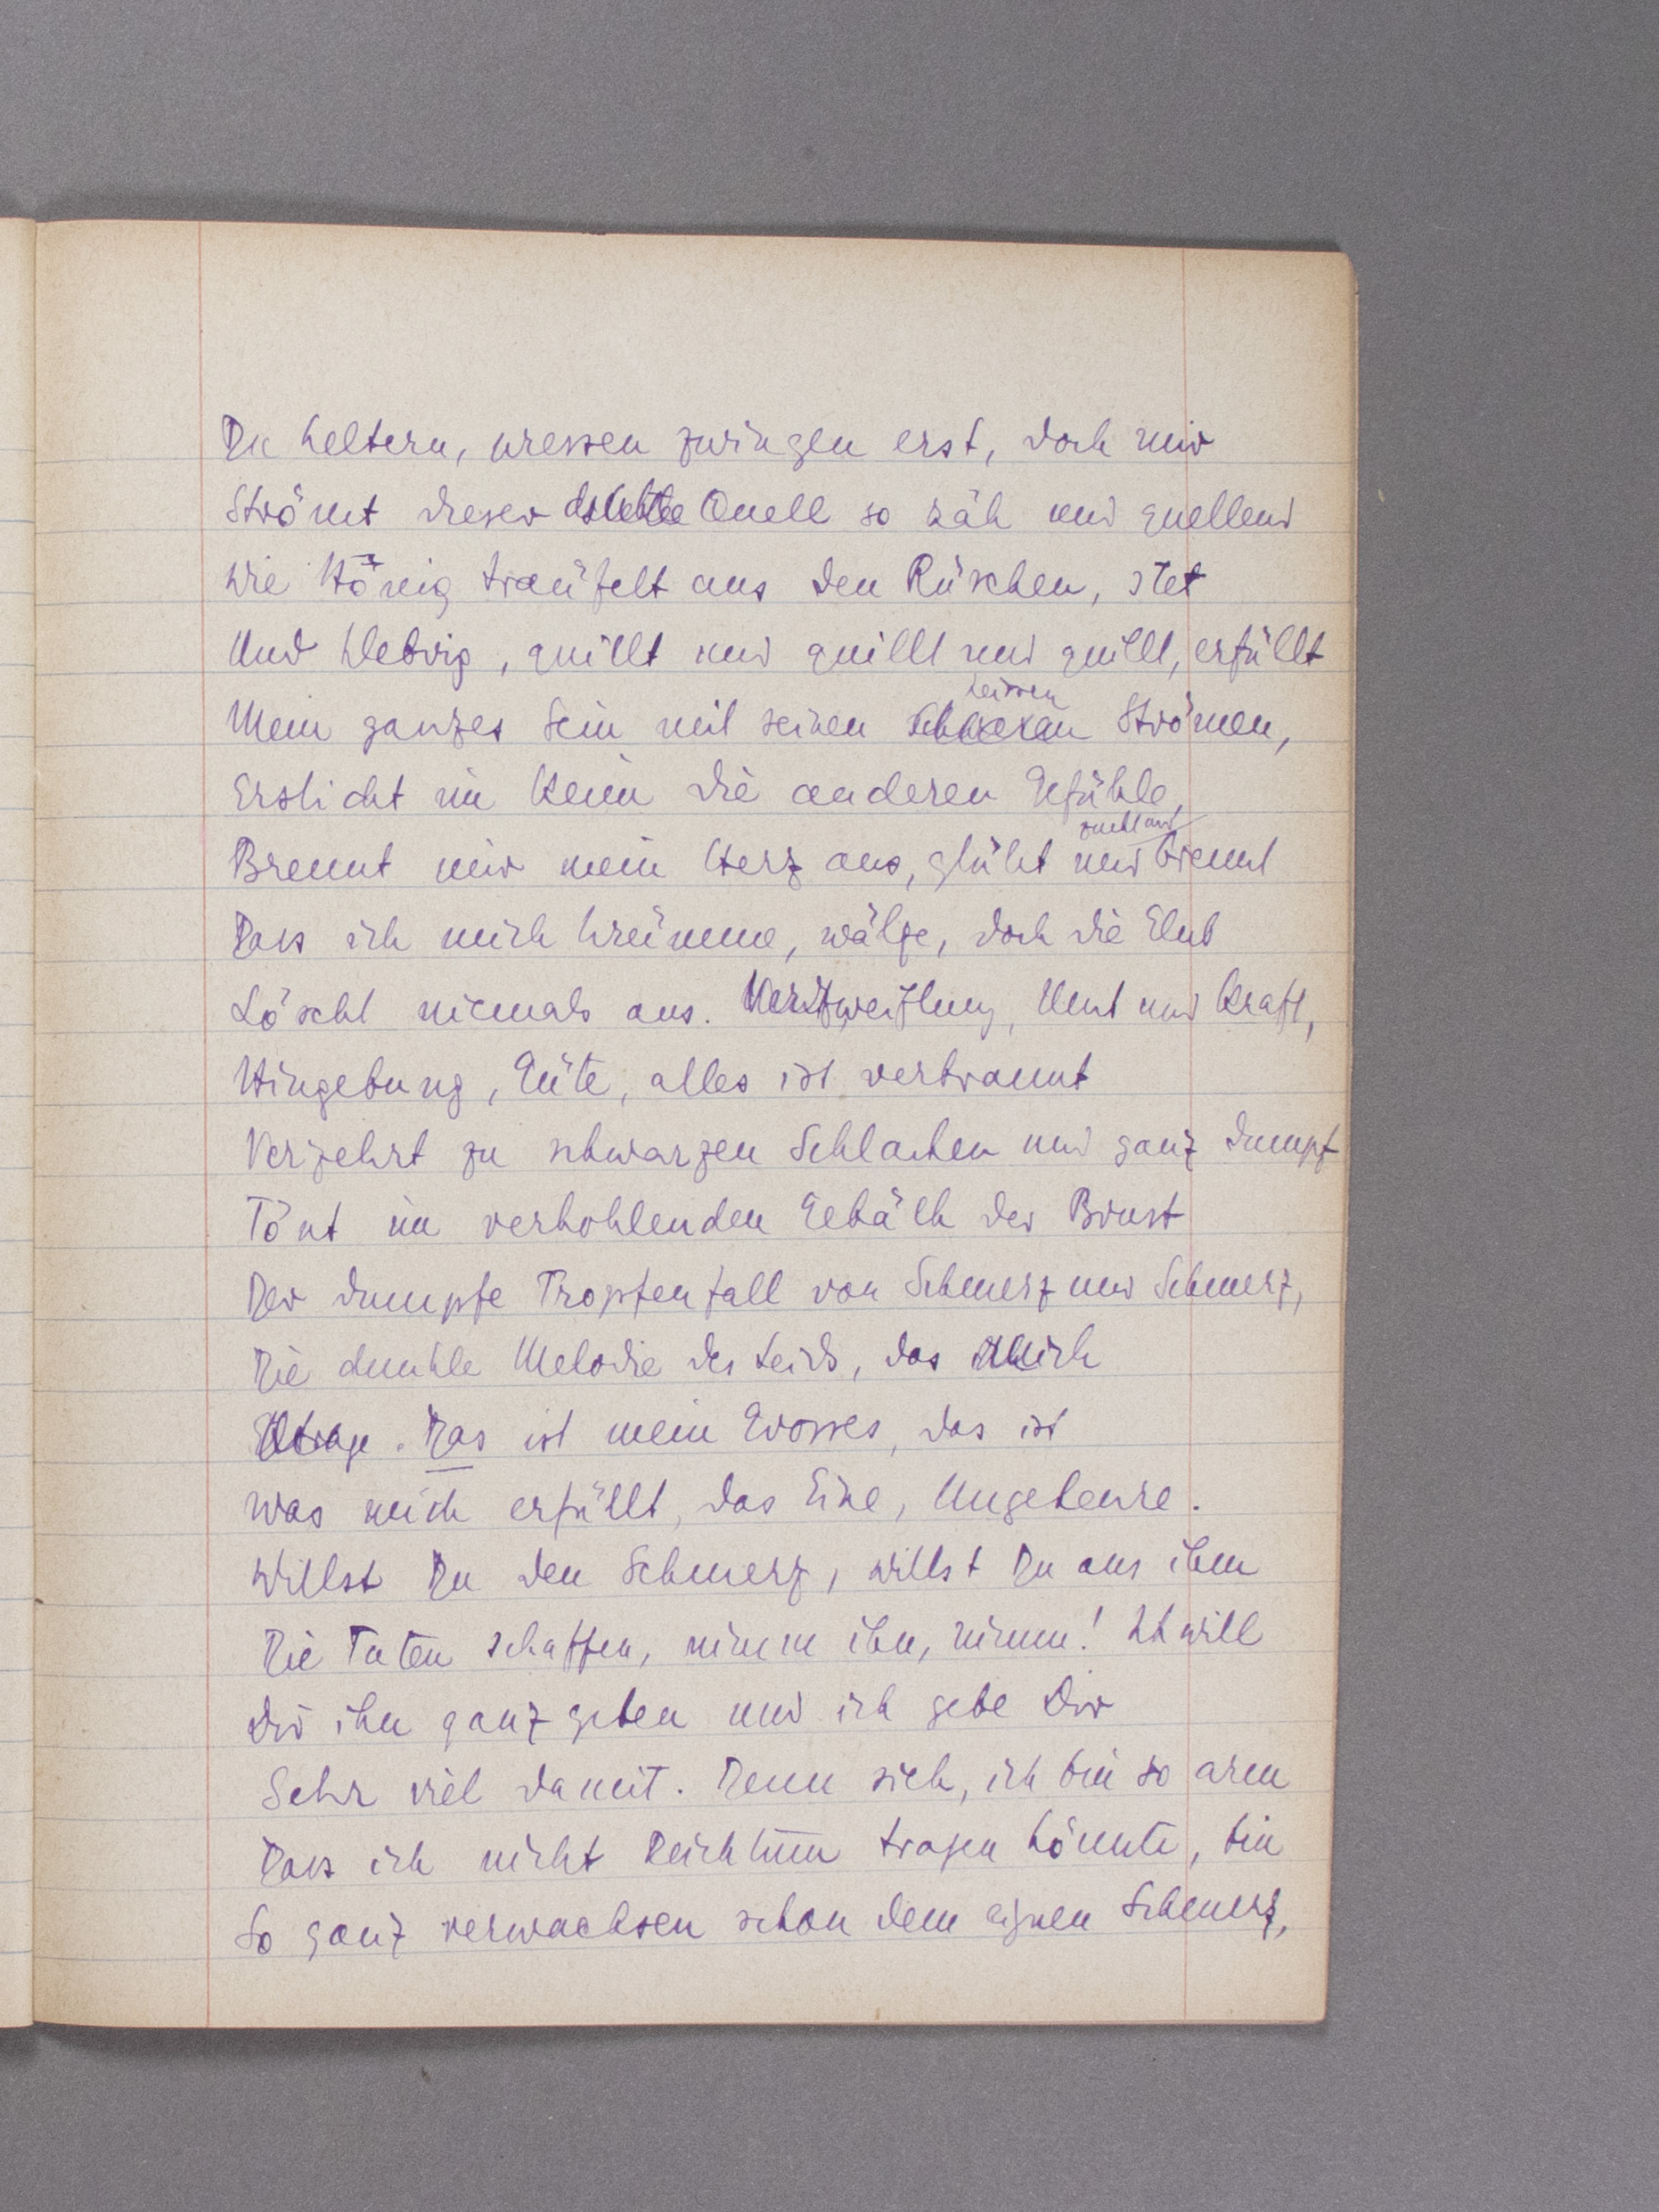 Du keltern, pressen zwingen erst, doch mir
Strömt dieser Quell so zäh und quellend
Wie Hönig träufelt aus den Rüschen, stet
Und klebrig, quillt und quillt und quillt, erfüllt
heissen
Mein ganzes Sein mit seinen Strömen,
Erstickt im Keim die anderen Gefühle,
zuckt und
Brennt mir mein Herz aus, glüht und brennt
Dass ich mich krümme, wälze, doch die Glut
Löscht niemals aus. Verzweiflung, Mut und Kraft,
Hingebung, Güte, alles ist verbrannt
Verzehrt zu schwarzen Schlacken und ganz dumpf
Tönt im verkohlenden Gebälk der Brust
Der dumpfe Tropfenfall von Schmerz und Schmerz,
Die dunkle Melodie des Leids, das ich
Ertrage. Das ist mein Grosses, das ist
Was mich erfüllt, das Eine, Ungeheure.
Willst Du den Schmerz, willst Du aus ihm
Die Taten schaffen, nimm ihn, nimm! Ich will
Dir ihn ganz geben und ich gebe Dir
Sehr viel damit. Denn sieh, ich bin so arm
Dass ich nicht Reichtum tragen könnte, bin
So ganz verwachsen schon dem eignen Schmerz,